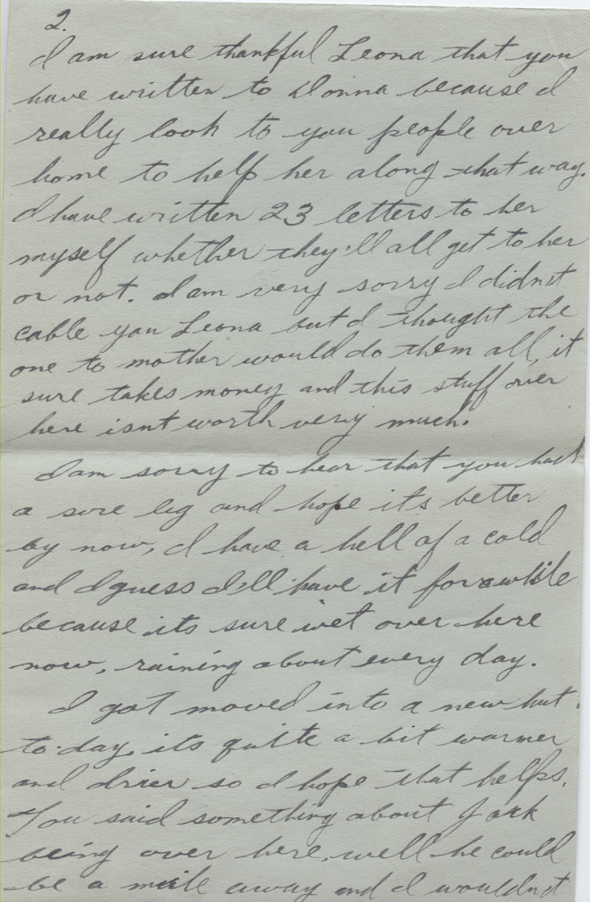 2.
I am sure thankful Leona that you
have written to Donna because I
really look to you people over
home to help her along that way.
I have written 23 letters to her
myself whether they'll all get to her
or not. I am very sorry I didnt
cable you Leona but I thought the
one to mother would do them all, it
sure takes money and this stuff over
here isnt worth very much.
I am sorry to hear that you had
a sore leg and hope its better
by now, I have a hell of a cold
and I guess I'll have it for awhile
because its sure wet over here
now, raining about every day.
I got moved into a new hut
to-day, its quite a bit warmer
and drier so I hope that helps.
You said something about Jack
being over here, well he could
be a mile away and I wouldnt